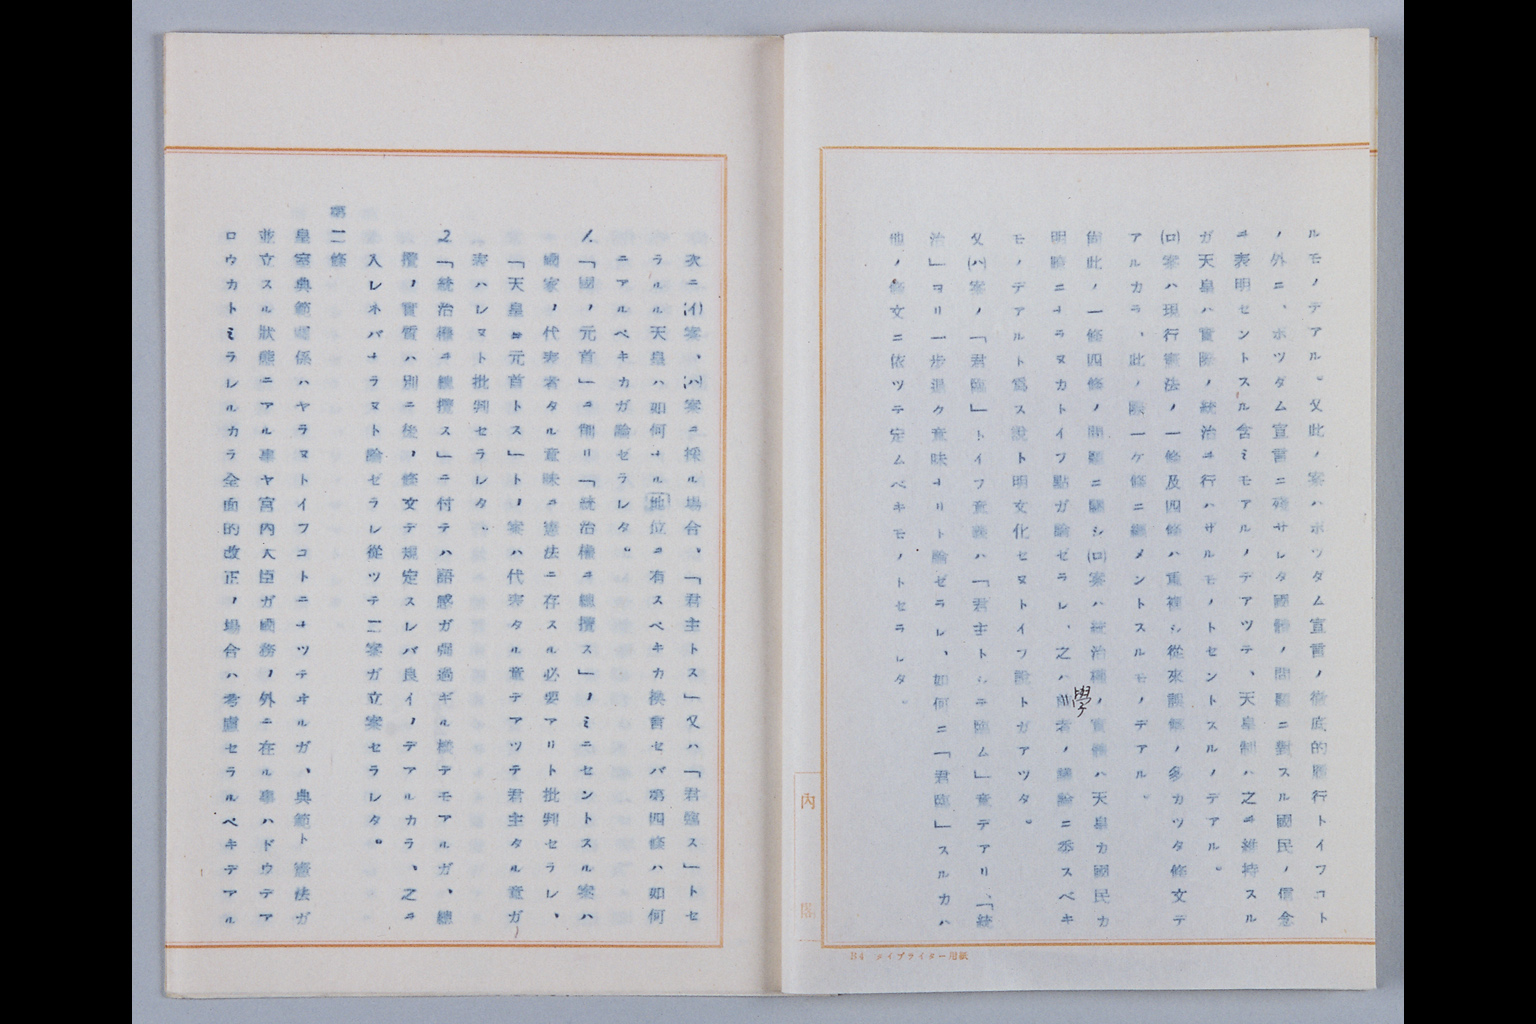 ルモノデアル。又此ノ案ハポツダム宣言ノ徹底的履行トイフコト
ノ外ニ、ポツダム宣言ニ残サレタ國體ノ問題ニ對スル國民ノ信念
ヲ表明セントスル含ミモアルノデアツテ、天皇制ハ之ヲ維持スル
ガ天皇ハ實際ノ統治ヲ行ハザルモノトセントスルノデアル。
(ロ)案ハ現行憲法ノ一條及四條ハ重複シ從來誤解ノ多カツタ條文デ
アルカラ、此ノ際一ケ條ニ纏メントスルモノデアル。
尚此ノ一條四條ノ問題ニ關シ(ロ)案ハ統治權ノ實體ハ天皇カ國民カ
明瞭ニナラヌカトイフ點ガ論ゼラレ、之ハ學者ノ議論ニ委スベキ
モノデアルト爲ス說ト明文化セヌトイフ說トガアツタ。
又(ハ)案ノ「君臨」トイフ意義ハ「君主トシテ臨ム」意デアリ、「統
治」ヨリ一步退ク意味ナリト論ゼラレ、如何ニ「君臨」スルカハ
他ノ條文ニ依ツテ定ムベキモノトセラレタ。
內閣
34 タイプライター用紙
次ニ(イ)案、(ハ)案ニ採ル場合、「君主トス」又ハ「君臨ス」トセ
ラルル天皇ハ如何ナル地位ヲ有スベキカ換言セバ第四條ハ如何
ニアルベキカガ論ゼラレタ。
1.「國ノ元首」ヲ削リ「統治權ヲ總攬ス」ノミニセントスル案ハ
國家ノ代表者タル意味ヲ憲法ニ存スル必要アリト批判セラレ、
「天皇ヲ元首トス」トノ案ハ代表タル意デアツテ君主タル意ガ
表ハレヌト批判セラレタ。
2「統治權ヲ總攬ス」ニ付テハ語感ガ强過ギル樣デモアルガ、總
攬ノ實質ハ別ニ後ノ條文デ規定スレバ良イノデアルカラ、之ヲ
入レネバナラヌト論ゼラレ從ツテ二案ガ立案セラレタ。
第二條
皇室典範關係ハヤラヌトイフコトニナツテヰルガ、典範ト憲法ガ
並立スル狀態ニアル事ヤ宮內大臣ガ國務ノ外ニ在ル事ハドウデア
ロウカトミラレルカラ全面的改正ノ場合ハ考慮セラルベキデアル